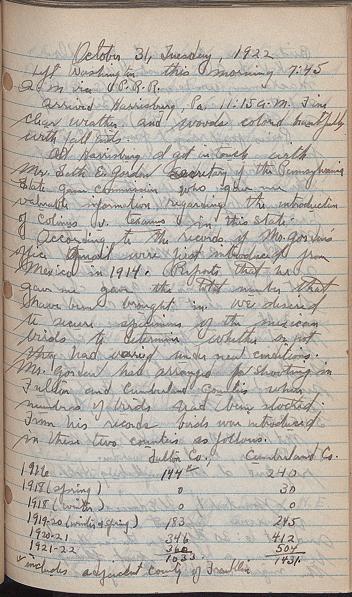 October 31, Tuesday, 1922
Left Washington this morning 7:45
a m via P.R.R.
Arrived Harrisburg, Pa, 11:15 a.m. Fine
clear weather and woods colored beautifully
with fall tints.
At Harrisburg I got in touch with
Mr. Seth E. Gordon Secretary of the Pennsylvania
State Game Commission who gave me
valuable information regarding the introduction
of Colinus v. texanus in this state.
According to the records of Mr. Gordon's
office quail were first introduced from
Mexico in 1914. Reports that he
gave me gave the total number that
have been brought in. We desired
to secure specimens of the mexican
birds to determine whether or not
they had varied under new conditions.
Mr. Gordon had arranged for shooting in
Fulton and Cumberland Counties where
numbers of birds had been stocked.
From his records birds were introduced
in these two counties as follows.
Fulton Co. Cumberland Co.
1916 144* 240
1918 (spring) 0 30
1918 (winter) 0 0
1919-20 (winter & spring) 183 245
1920-21 346 412
1921-22 360 504
1033 1431
* includes adjacent county of Franklin